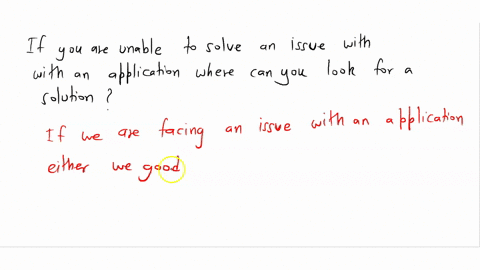 If you are unable to solve an issue with
with an application where can you look for a
solution ?
If we are facing an issue with an application
either we good